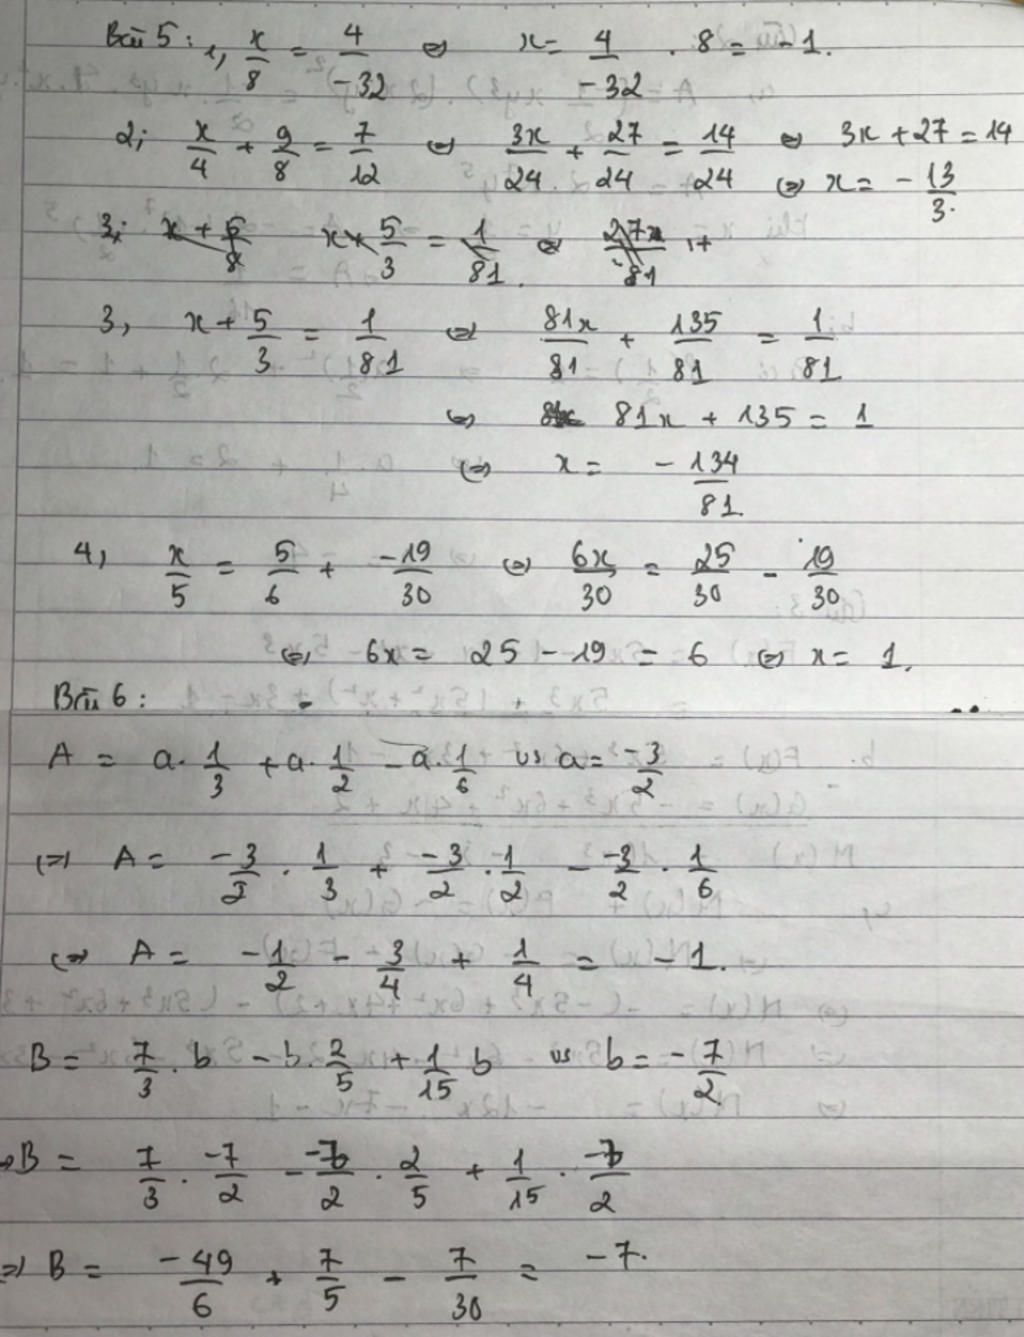 Bài 5: 1, x/8 = 4/-32 ⇔ x = 4/-32 . 8 = -1.
2; x/4 + 9/8 = 7/12 ⇔ 3x/24 + 27/24 = 14/24 ⇔ 3x + 27 = 14
⇔ x = -13/3.
3, x + 5/3 = 1/81 ⇔ 81x/81 + 135/81 = 1/81
⇔ 81x + 135 = 1
⇔ x = -134/81.
4, x/5 = 5/6 + -19/30 ⇔ 6x/30 = 25/30 - 19/30
⇔ 6x = 25 - 19 = 6 ⇔ x = 1.
Bài 6:
A = a. 1/3 + a. 1/2 - a. 1/6 vs a = -3/2
⇔ A = -3/2 . 1/3 + -3/2 . 1/2 - -3/2 . 1/6
⇔ A = -1/2 - 3/4 + 1/4 = -1.
B = 7/3 . b - b. 2/5 + 1/15 b vs b = -7/2
⇔ B = 7/3 . -7/2 - -7/2 . 2/5 + 1/15 . -7/2
⇔ B = -49/6 + 7/5 - 7/30 = -7.